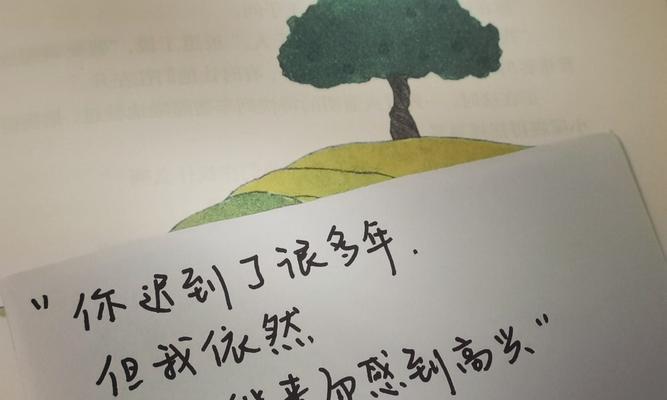 “你迟到了很多年.
但我依然
来感到高兴”